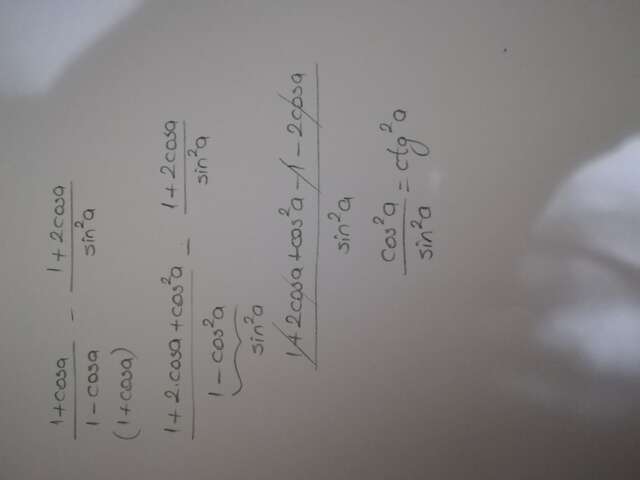 1+cosa / 1-cosa - 1+2cosa / sin²a
(1+cosa)
1+2.cosa+cos²a / 1-cos²a - 1+2cosa / sin²a
sin²a
1+2cosa+cos²a-1-2cosa / sin²a
cos²a / sin²a = ctg²a